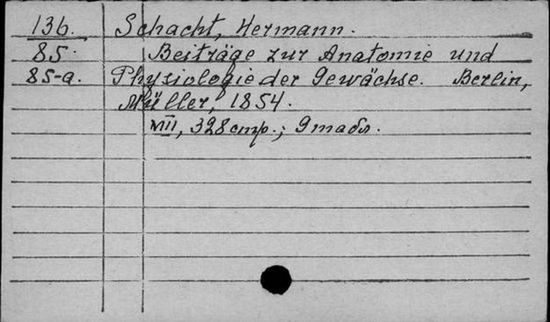 136. Schacht, Hermann.
85. Beiträge zur Anatomie und
85-a. Physiologie der Gewächse. Berlin,
Müller, 1854.
VIII, 328 стр.; 9 табл.